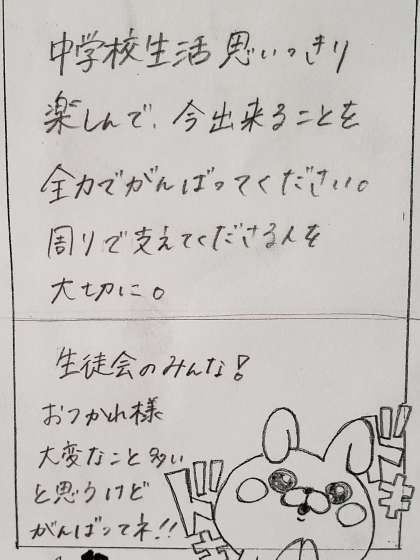 中学校生活思いっきり
楽しんで、今出来ることを
全力でがんばってください。
周りで支えてくださる人を
大切に。
生徒会のみんな!
おつかれ様
大変なこと多い
と思うけど
がんばってネ!!
ドキ
ドキ